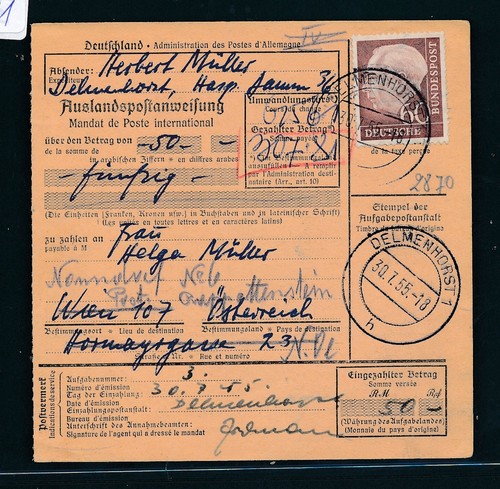 1
Deutschland - Administration des Postes d'Allemagne
Absender: Herbert Müller
Expéditeur
Delmenhorst, Hasp. Damm
Auslandspostanweisung
Mandat de Poste international
Umwandlungskurs
Cours de change
Gezahlter Betrag
Somme payée
über den Betrag von -50-
de la somme de
in arabischen Ziffern - en chiffres arabes
auszufüllen - A remplir
par l'Administration desti-
nataire (Arr., art. 10)
fünfzig -
(Die Einheiten (Franken, Kronen usw.) in Buchstaben und ja lateinischer Schrift)
(Les unités en toutes lettres et en caractères latins)
zu zahlen an Frau
payable à M
Helga Müller
Wien 107 Österreich
Bestimmungsort - Lieu de destination Bestimmungsland - Pays de destination
Hormayrgasse 23
Straße u. Nr. Rue et numéro
DEUTSCHE
BUNDESPOST
60
DELMENHORST
de la taxe perçue
2870
Stempel der
Aufgabepostanstalt
Timbre du bureau d'origine
DELMENHORST 1
30.7.55.-18
h
Postvermerk
Indications de service
Aufgabenummer: 3.
Numéro d'émission
Tag der Einzahlung: 30.7.55.
Date d'émission
Einzahlungspostanstalt: Delmenhorst
Bureau d'émission
Unterschrift des Annahmebeamten:
Signature de l'agent qui a dressé le mandat
Eingezahlter Betrag
Somme versée
RM Rpf
50 -
(Währung des Aufgabelandes)
(Monnaie du pays d'origine)